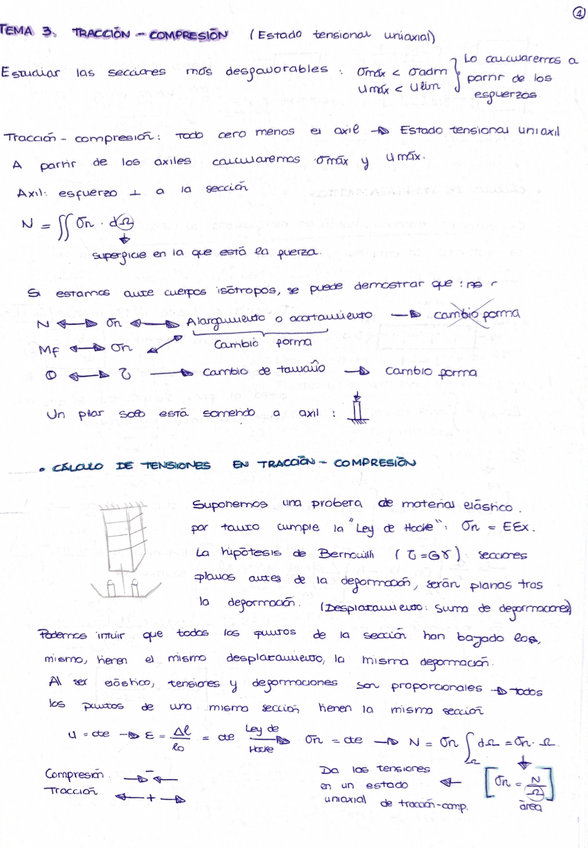 1
TEMA 3. TRACCIÓN - COMPRESIÓN (Estado tensional uniaxial)
Estudiar las secciones más desfavorables : σmáx < σadm } Lo calcularemos a
umáx < ulím partir de los
esfuerzos
Tracción - compresión: Todo cero menos el axil → Estado tensional uniaxil
A partir de los axiles calcularemos σmáx y umáx.
Axil: esfuerzo ⊥ a la sección
N = ∬ σn · dΩ
superficie en la que está la fuerza.
Si estamos ante cuerpos isótropos, se puede demostrar que :
N ↔ σn ↔ Alargamiento o acortamiento → cambio forma
Mf ↔ σn Cambió forma
↔ τ → Cambio de tamaño → Cambio forma
Un pilar solo está sometido a axil :
• CÁLCULO DE TENSIONES EN TRACCIÓN - COMPRESIÓN
Suponemos una probeta de material elástico.
por tanto cumple la "Ley de Hooke": σn = EEx.
La hipótesis de Bernouilli (τ=Gγ) secciones
planas antes de la deformación, serán planas tras
la deformación. (Desplazamiento: Suma de deformaciones)
Podemos intuir que todos los puntos de la sección han bajado
mismo, tienen el mismo desplazamiento, la misma deformación.
Al ser elástico, tensiones y deformaciones son proporcionales → todos
los puntos de una misma sección tienen la misma sección
u = cte → ε = Δl/l0 = cte Ley de Hooke → σn = cte → N = σn ∫Ω dΩ = σn · Ω
Compresión → - ←
Tracción ← + →
Da las tensiones
en un estado ← [σn = N/Ω]
uniaxial de tracción-comp. área